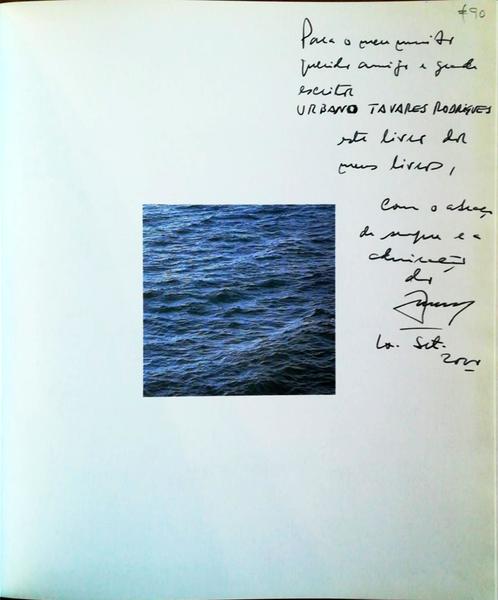 €90
Para o meu muito
querido amigo e grande
escritor
URBANO TAVARES RODRIGUES
este livro dos
meus livros,
Com o abraço
de sempre e a
admiração
do
Lx. Set.
2000